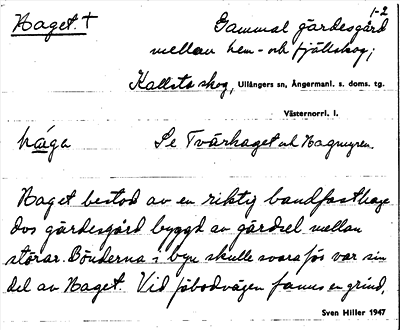 1-2
Haget. † Gammal gärdesgård
mellan hem- och fjällskog;
Kallsta skog, Ullångers sn, Ångermanl. s. doms. tg.
Västernorrl. l.
hága Se Tvärhaget och Hagmyren.
Haget bestod av en riktig bandfasthage
dvs gärdesgård byggd av gärdsel mellan
störar. Bönderna i byn skulle svara för var sin
del av Haget. Vid fäbodvägen fanns en grind,
Sven Hiller 1947